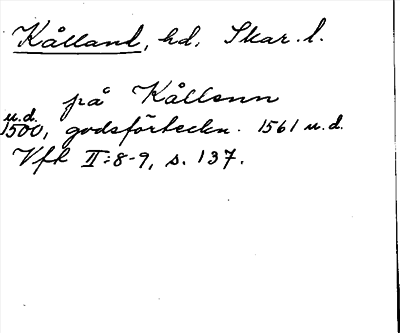 Kålland, hd, Skar. l.
på Kållenn
u.d.
1500, godsförteckn. 1561 u.d.
Vfh II:8-9, s. 137.